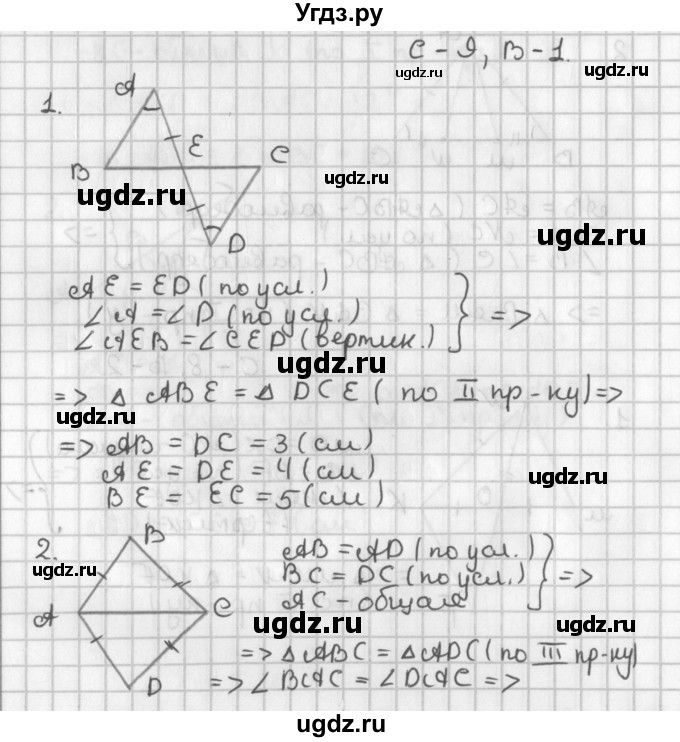 Угдз.ру
С - 9, В - 1.
ugdz.ru ugdz.ru
1.
A
E
B
C
ugdz.ru ugdz.ru
D
ugdz.ru
AE = ED (по усл.)
∠A = ∠D (по усл.)
∠AEB = ∠CED (вертик.) } =>
ugdz.ru ugdz.ru
=> Δ ABE = Δ DCE ( по II пр-ку) =>
=> AB = DC = 3 (см)
AE = DE = 4 (см)
ugdz.ru
BE = EC = 5 (см)
2.
B
A
C
D
ugdz.ru
AB = AD (по усл.)
BC = DC (по усл.) } =>
AC - общая
ugdz.ru ugdz.ru
=> Δ ABC = Δ ADC ( по III пр-ку)
=> ∠ BAC = ∠ DAC =>
ugdz.ru ugdz.ru
ugdz.ru